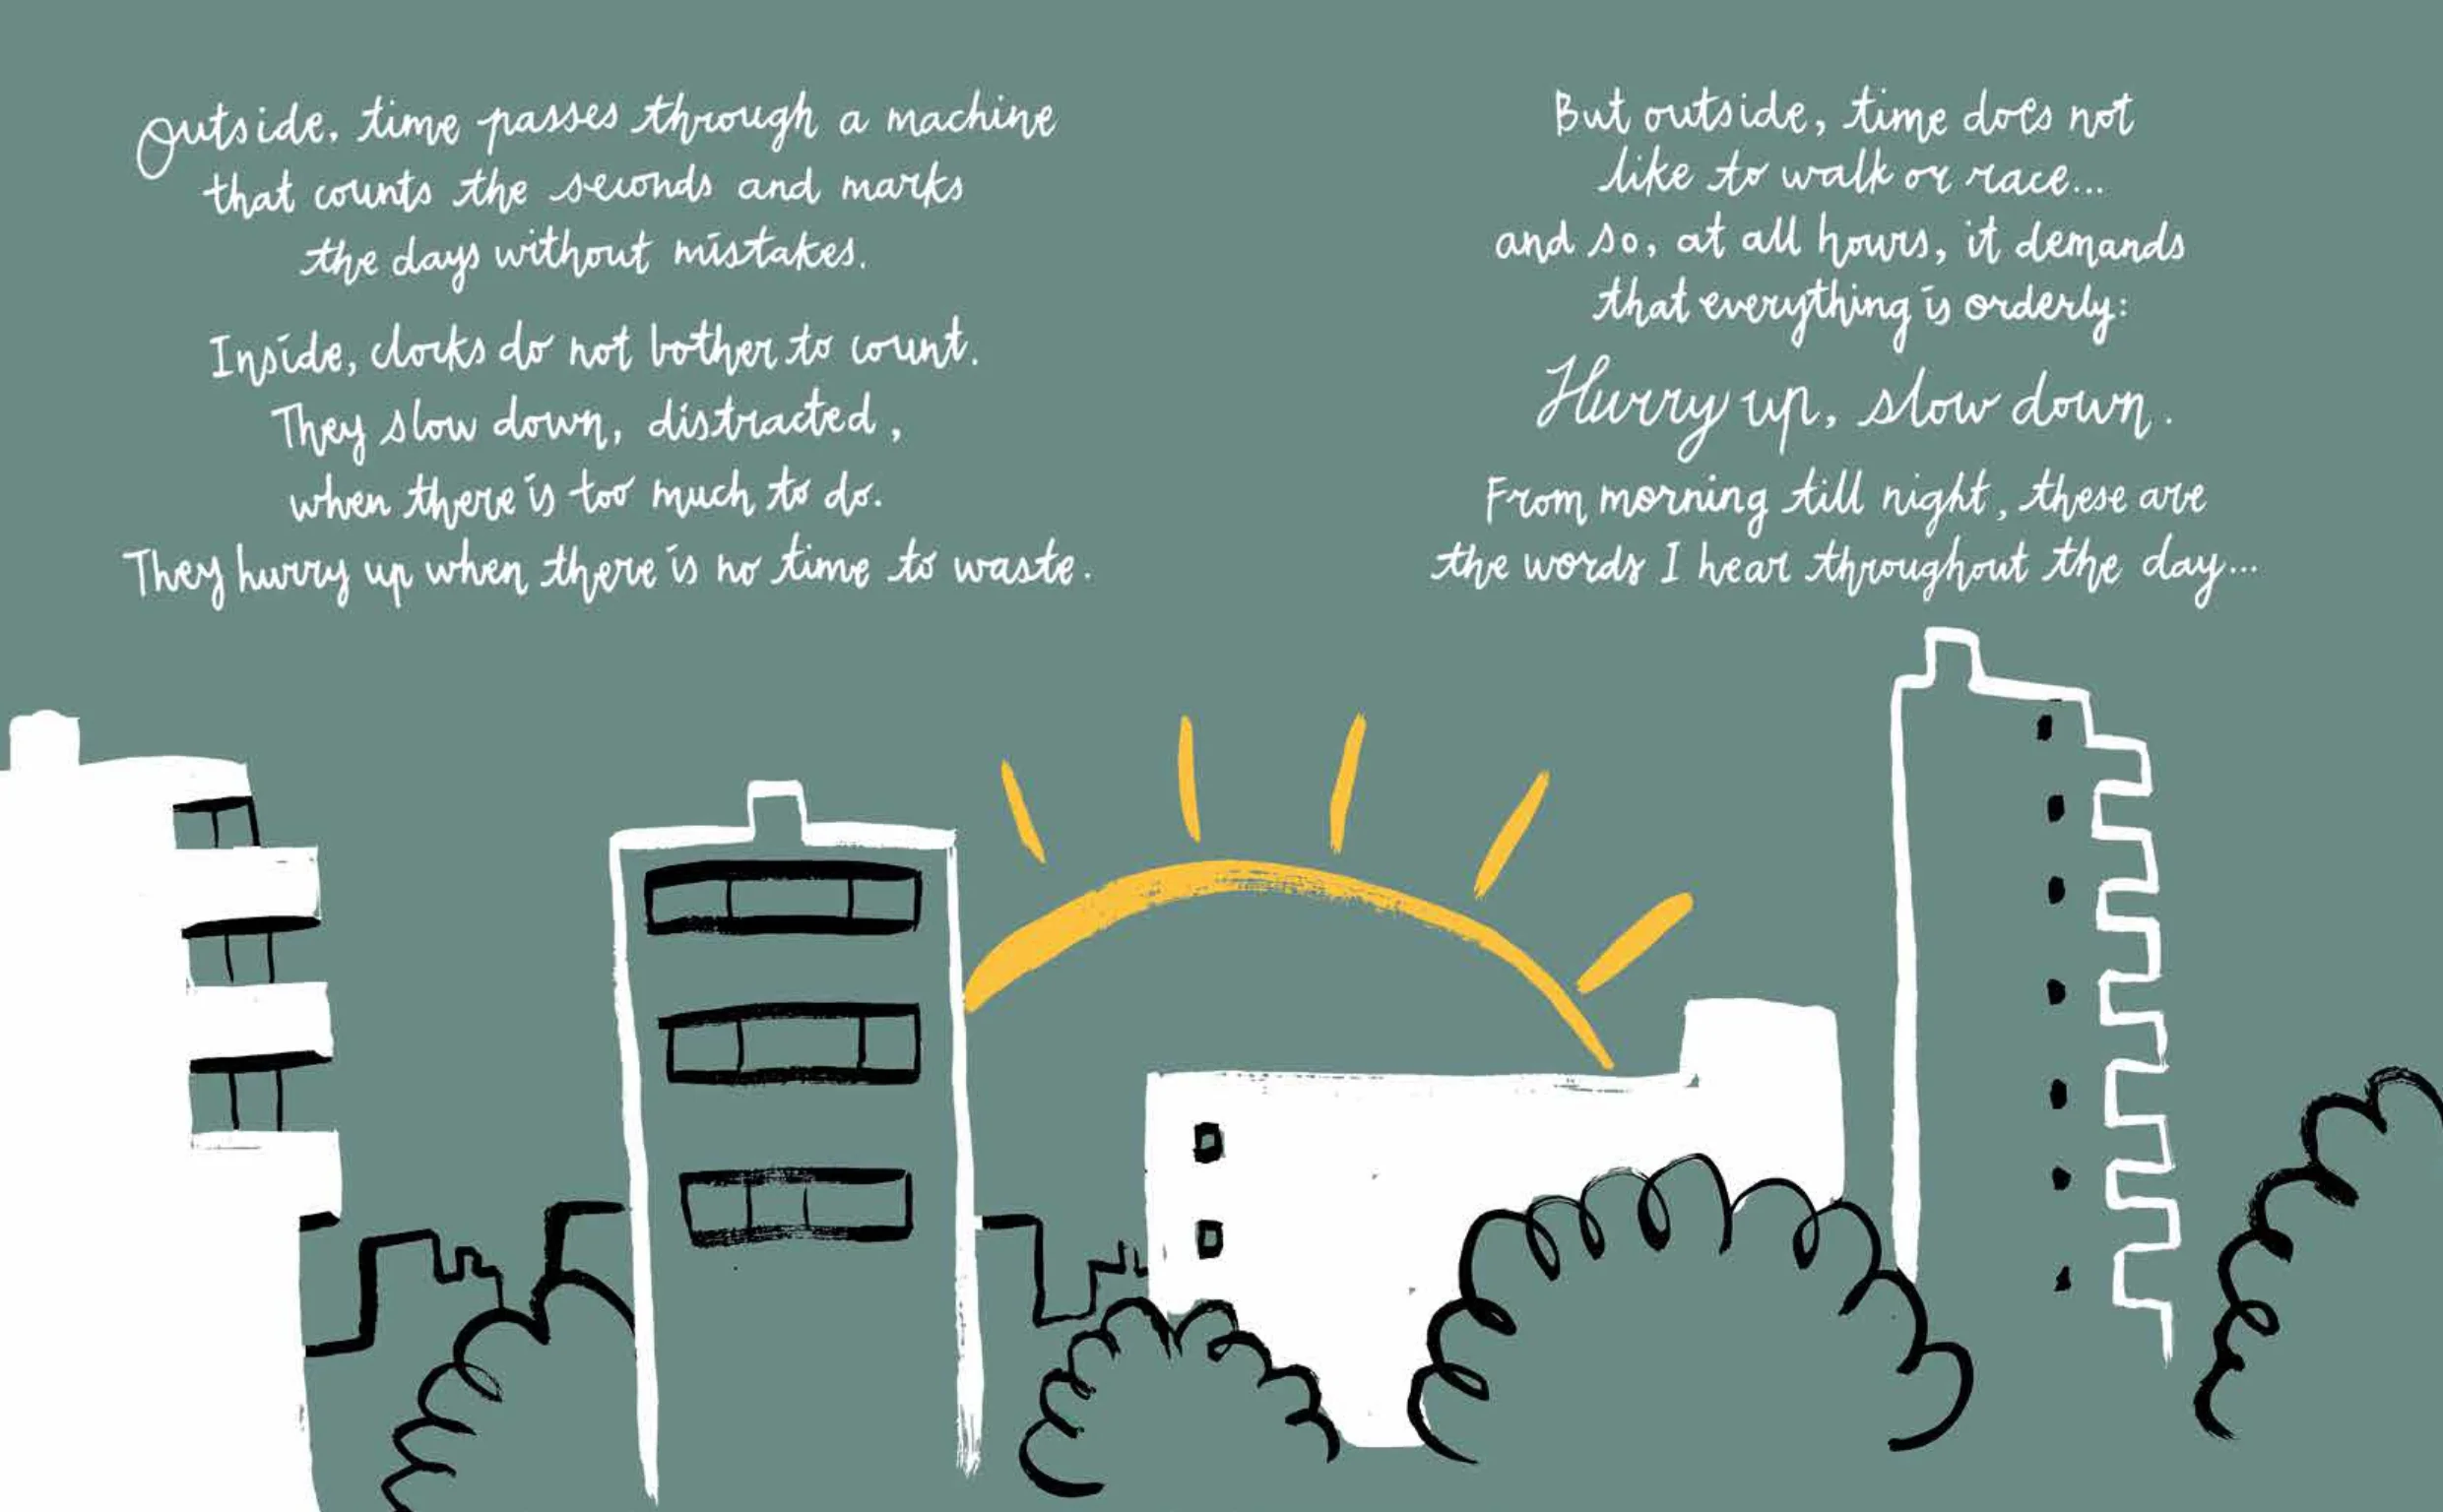 Outside, time passes through a machine
that counts the seconds and marks
the days without mistakes.
Inside, clocks do not bother to count.
They slow down, distracted,
when there is too much to do.
They hurry up when there is no time to waste.
But outside, time does not
like to walk or race...
and so, at all hours, it demands
that everything is orderly:
Hurry up, slow down.
From morning till night, these are
the words I hear throughout the day...